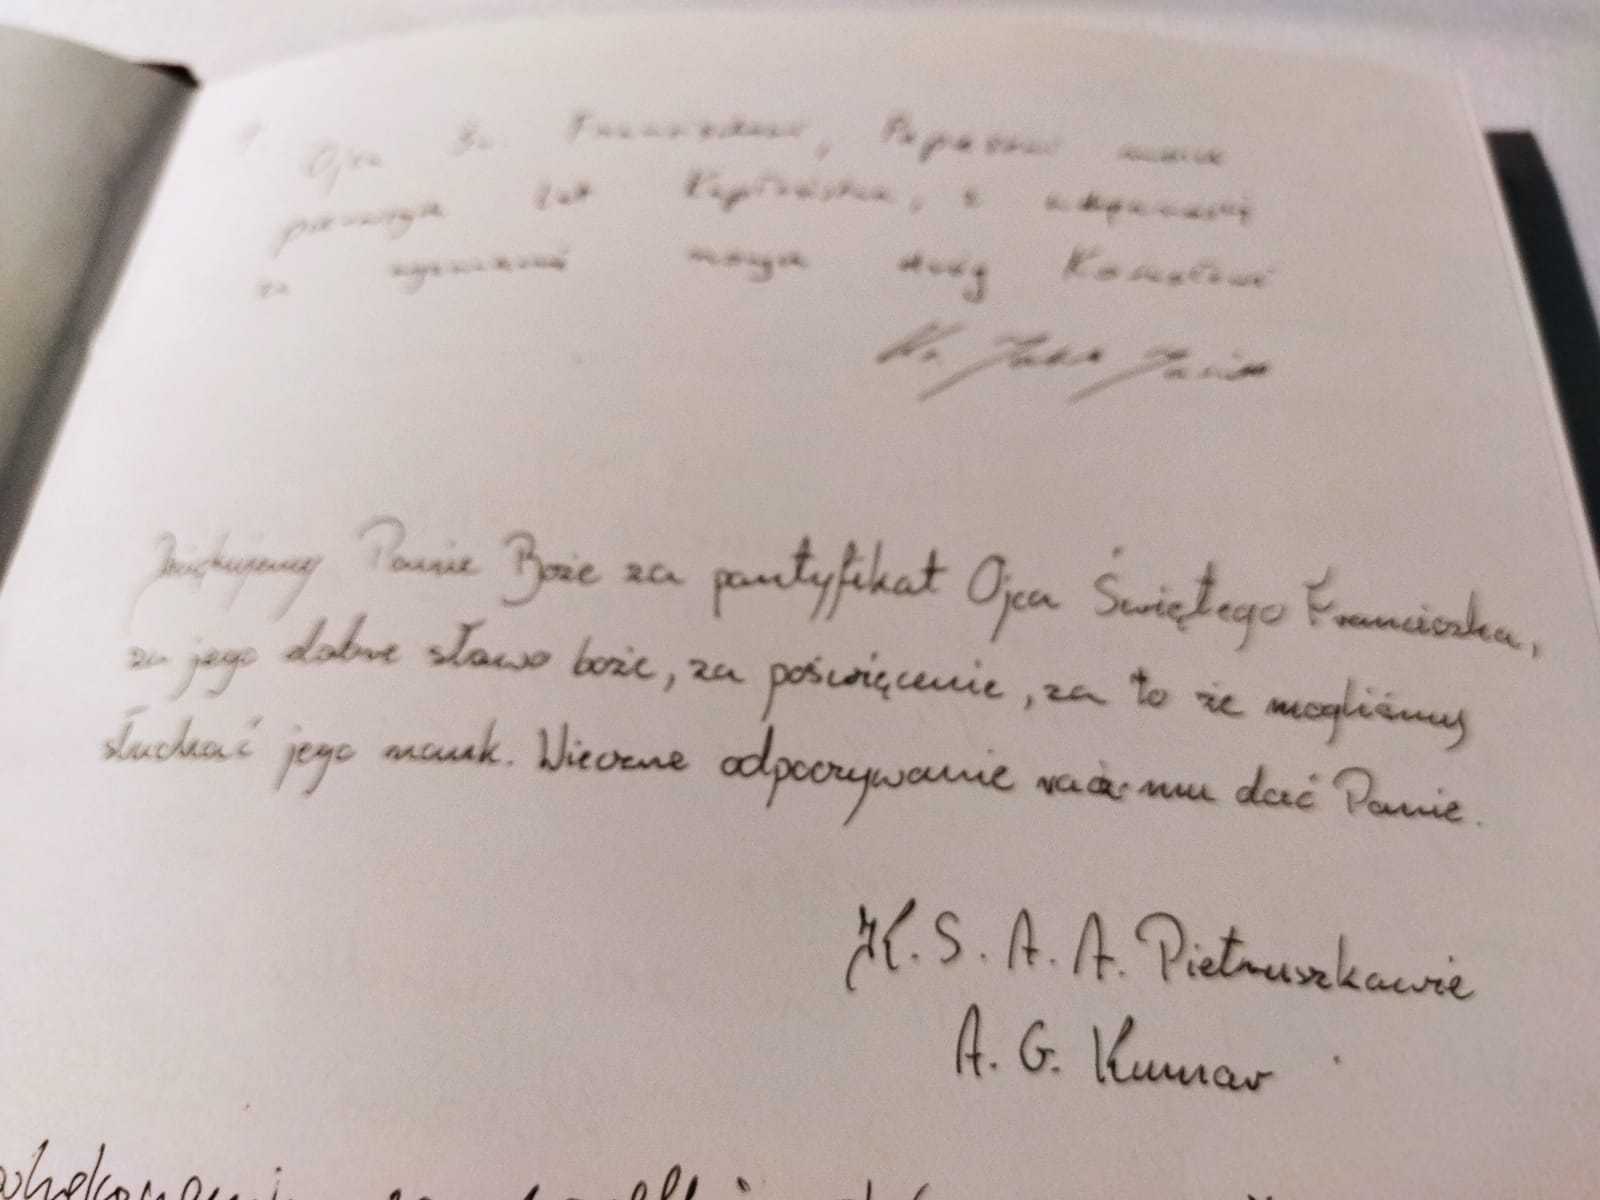 Ojcu Św. Franciszkowi, Papieżowi moich
pierwszych lat Kapłaństwa, z wdzięcznością
za
Ks. Jakub
Dziękujemy Panie Boże za pontyfikat Ojca Świętego Franciszka,
za jego dobre słowo boże, za poświęcenie, za to że mogliśmy
słuchać jego nauk. Wieczne odpoczywanie racz mu dać Panie.
K. S. A. A. Pietruszkawie
A. G. Kumar